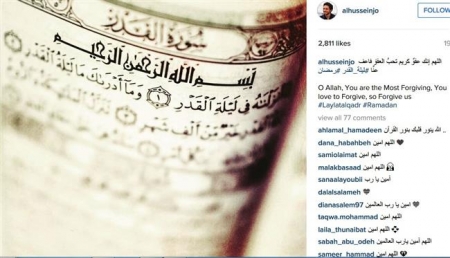 سورة القدر
بسم الله الرحمن الرحيم
في ليلة القدر ١ وما أدرىك ما ليلة القدر
خير من ألف شهر
alhusseinjo
FOLLOW
2,811 likes
alhusseinjo اللهم إنك عفوٌ كريم تحبُّ العفو فاعف
عنّا #ليلة_القدر #رمضان
O Allah, You are the Most Forgiving, You
love to Forgive, so Forgive us
#Laylatalqadr #Ramadan
view all 77 comments
ahlamal_hamadeen الله ينور قلبك بنور القرآن ..
dana_hababheh اللهم امين
samiolaimat اللهم امين
malakbasaad اللهم امين
sanaalayoubli أمين يا رب
dalalsalameh ❤
dianasalem97 ❤ امين يا رب العالمين
taqwa.mohammad اللهم امين
laila_thunaibat اللهم امين
sabah_abu_odeh اللهم أمين يارب العالمين
sameer_hammad اللهم امين